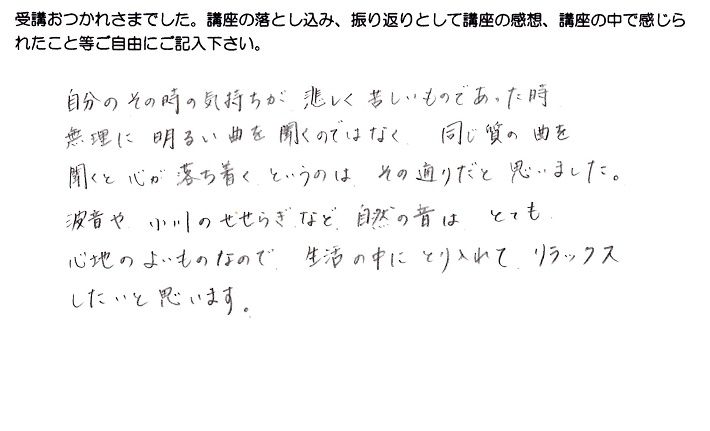 受講おつかれさまでした。講座の落とし込み、振り返りとして講座の感想、講座の中で感じら
れたこと等ご自由にご記入下さい。
自分のその時の気持ちが 悲しく苦しいものであった時
無理に 明るい曲を聞くのではなく 同じ質の曲を
聞くと心が落ち着くというのは その通りだと思いました。
波音や 小川のせせらぎなど 自然の音は とても
心地のよいものなので 生活の中にとり入れて リラックス
したいと思います。